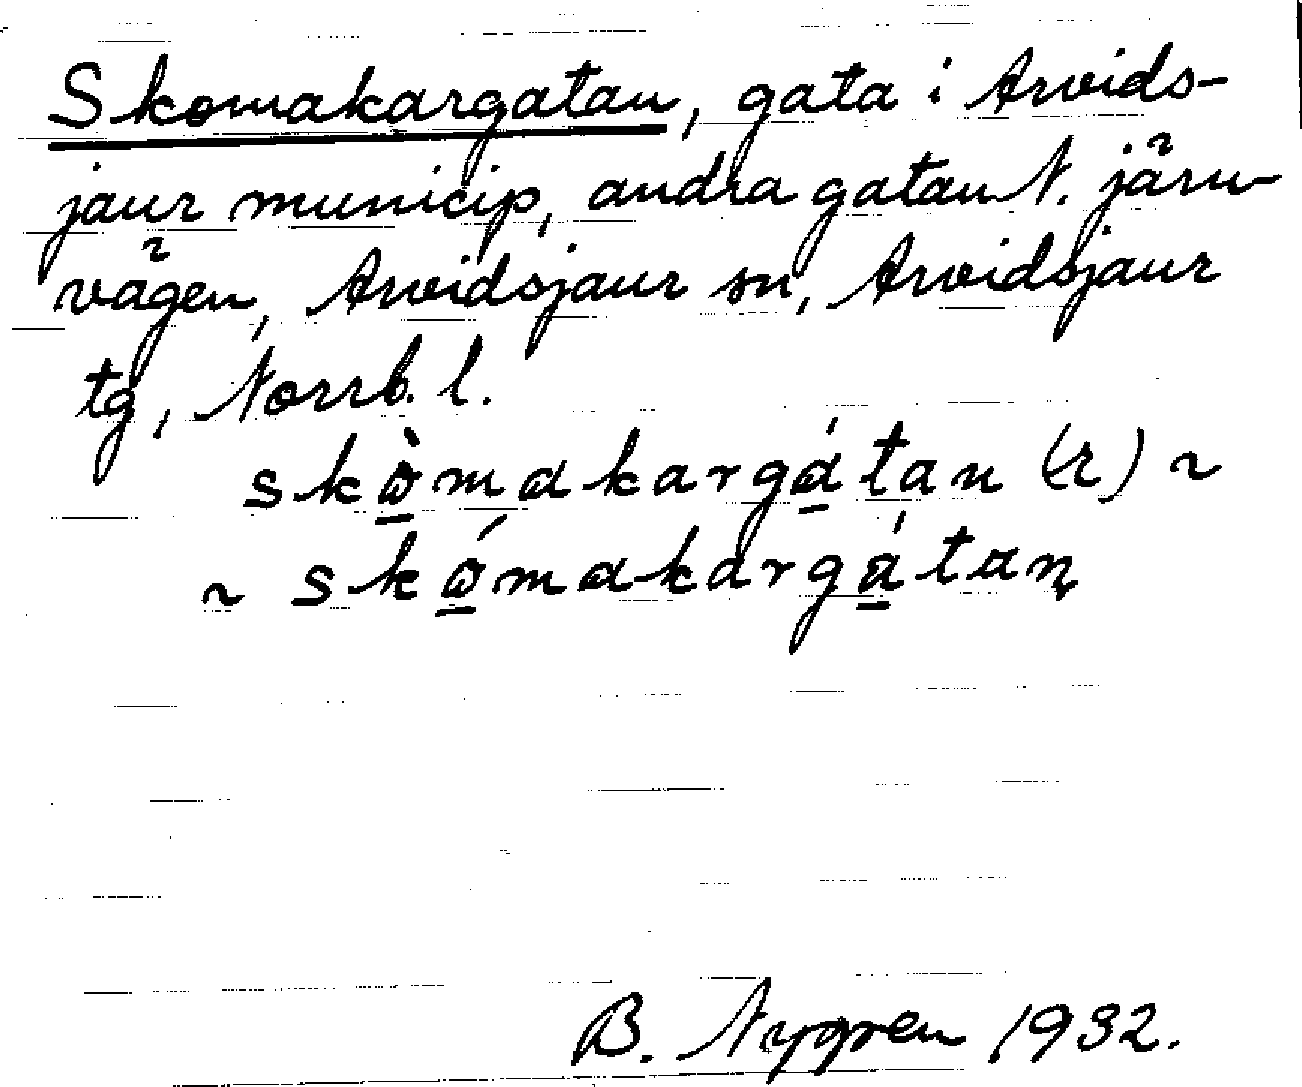 Skomakargatan, gata i Arvids-
jaur municip, andra gatan N. järn-
vägen, Arvidsjaur sn, Arvidsjaur
tg, Norrb. l.
skὼ̲makargá̲tan (r) ~
~ skώ̲makargá̲taɳ
B. Nygren 1932.